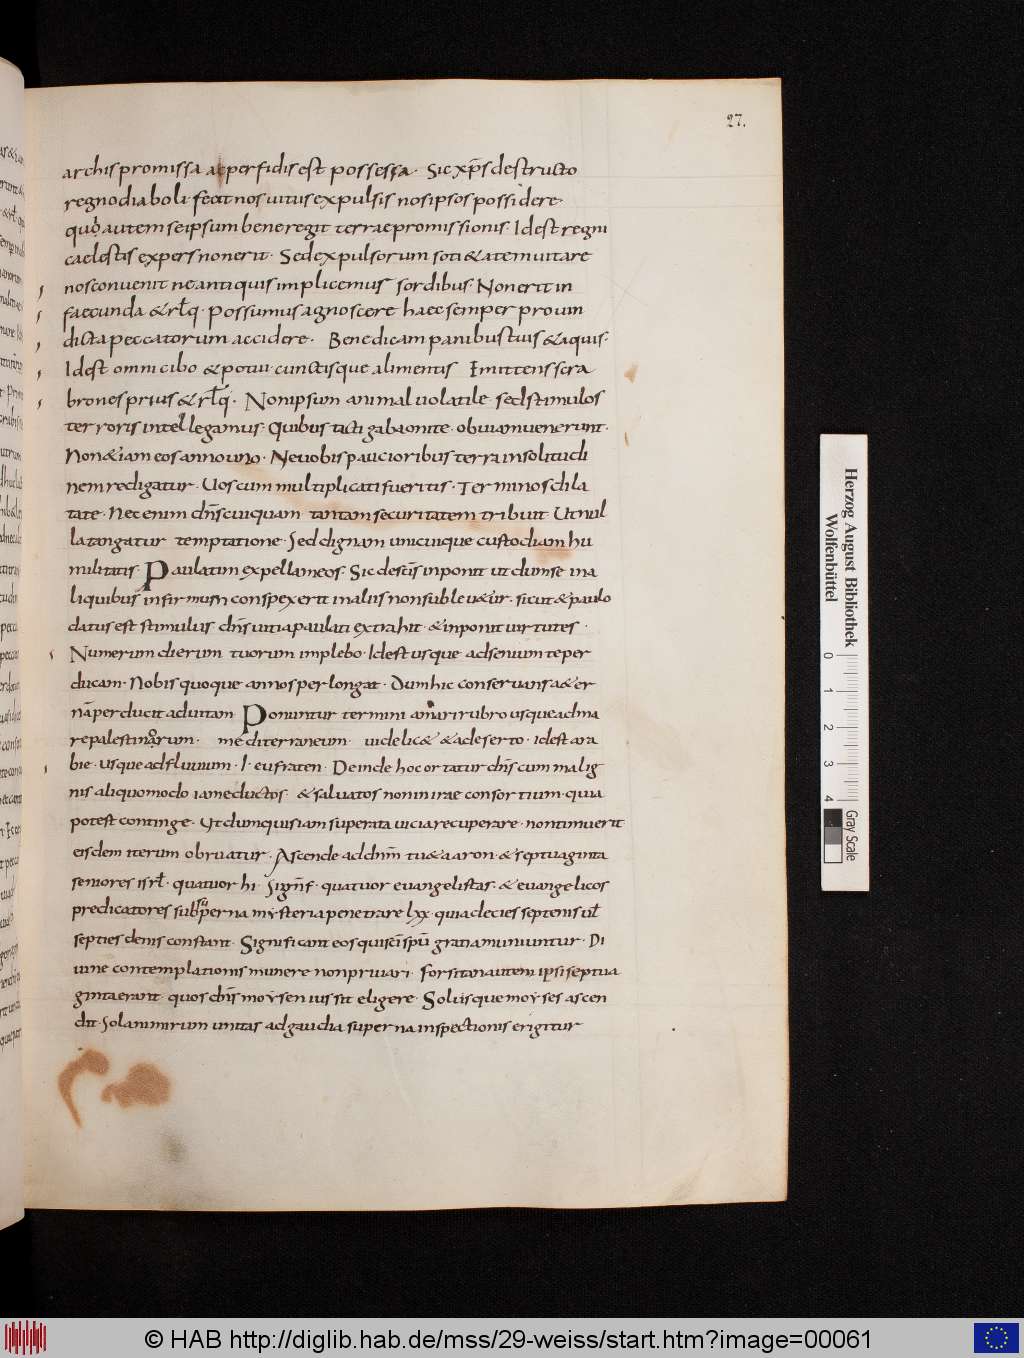 27.
archis promissa a perfidis est possessa · Sic xp̄s destructo
regno diaboli fecit nos uitus expulsis nos ipsos possidere ·
quo autem se ipsum bene regit terrae promissionis · Id est regni
caelestis expers non erit · Sed expulsorum soti & iatem uitare
nos conuenit ne antiquis implicemus sordibus · Non erit in
faecunda & rlq̄ · Possumus agnoscere haec semper pro uin
dicta peccatorum accidere · Benedicam panibus tuis & aquis ·
Id est omni cibo & potui cunctisque alimentis Emittens scra
brones prius & rlq̄ · Non ipsum animal uolatile · sed stimulos
terroris intellegamus · Quibus tacti gabaonite · obuiam uenerunt ·
Non &iam eos anno uno · Ne uobis paucioribus terra in solitudi
nem redigatur · Uos cum multiplicati fueritis · Terminos dila
tate · Nec enim dn̄s cuiquam tantam securitatem tribuit Ut nul
la tangatur temptatione · Sed dignam unicuique custodiam hu
militatis · Paulatim expellam eos · Sic desc̄is inponit ut dum se in a
liquibus infirmum conspexerit in aliis non subleu&ur · sicut & paulo
datus est stimulus dn̄s uitia paulati extrahit · & inponit uirtutes ·
Numerum dierum tuorum implebo · Id est usque ad senium te per
ducam · Nobis quoque annos perlongat · Dum hic conseruans a & er
nā perducit ad uitam Ponuntur termini a mari rubro usque ad ma
re palestinorum · mediterraneum · uidelic& & a deserto · id est ara
bie · usque ad fluuium · I · eufraten · Deinde hoc ortatur dn̄s cum malig
nis aliquo modo iam eductos & saluatos non inirae consortium · quia
potest continge · Ut dum quis iam superata uicia recuperare · non timuerit
eisdem iterum obruatur · Ascende ad dnm̄ tu & aaron · & septuaginta
seniores isrl̄ · quatuor hi · Sign̄f · quatuor euangelistas · & euangelicos
predicatores sub superna mysteria penetrare lxx · quia decies septenis ul̄
septies denis constant · Significant eos qui sc̄i sp̄u gratia muniuntur · Di
uine contemplationis munere non priuari · Forsitan autem ipsi septua
ginta erant quos dn̄s moysen iussit eligere · Solusque moyses ascen
dit · Sola nimirum unitas ad gaudia superna inspectionis erigitur
Herzog August Bibliothek
Wolfenbüttel
0 1 2 3 4
Gray Scale
© HAB http://diglib.hab.de/mss/29-weiss/start.htm?image=00061